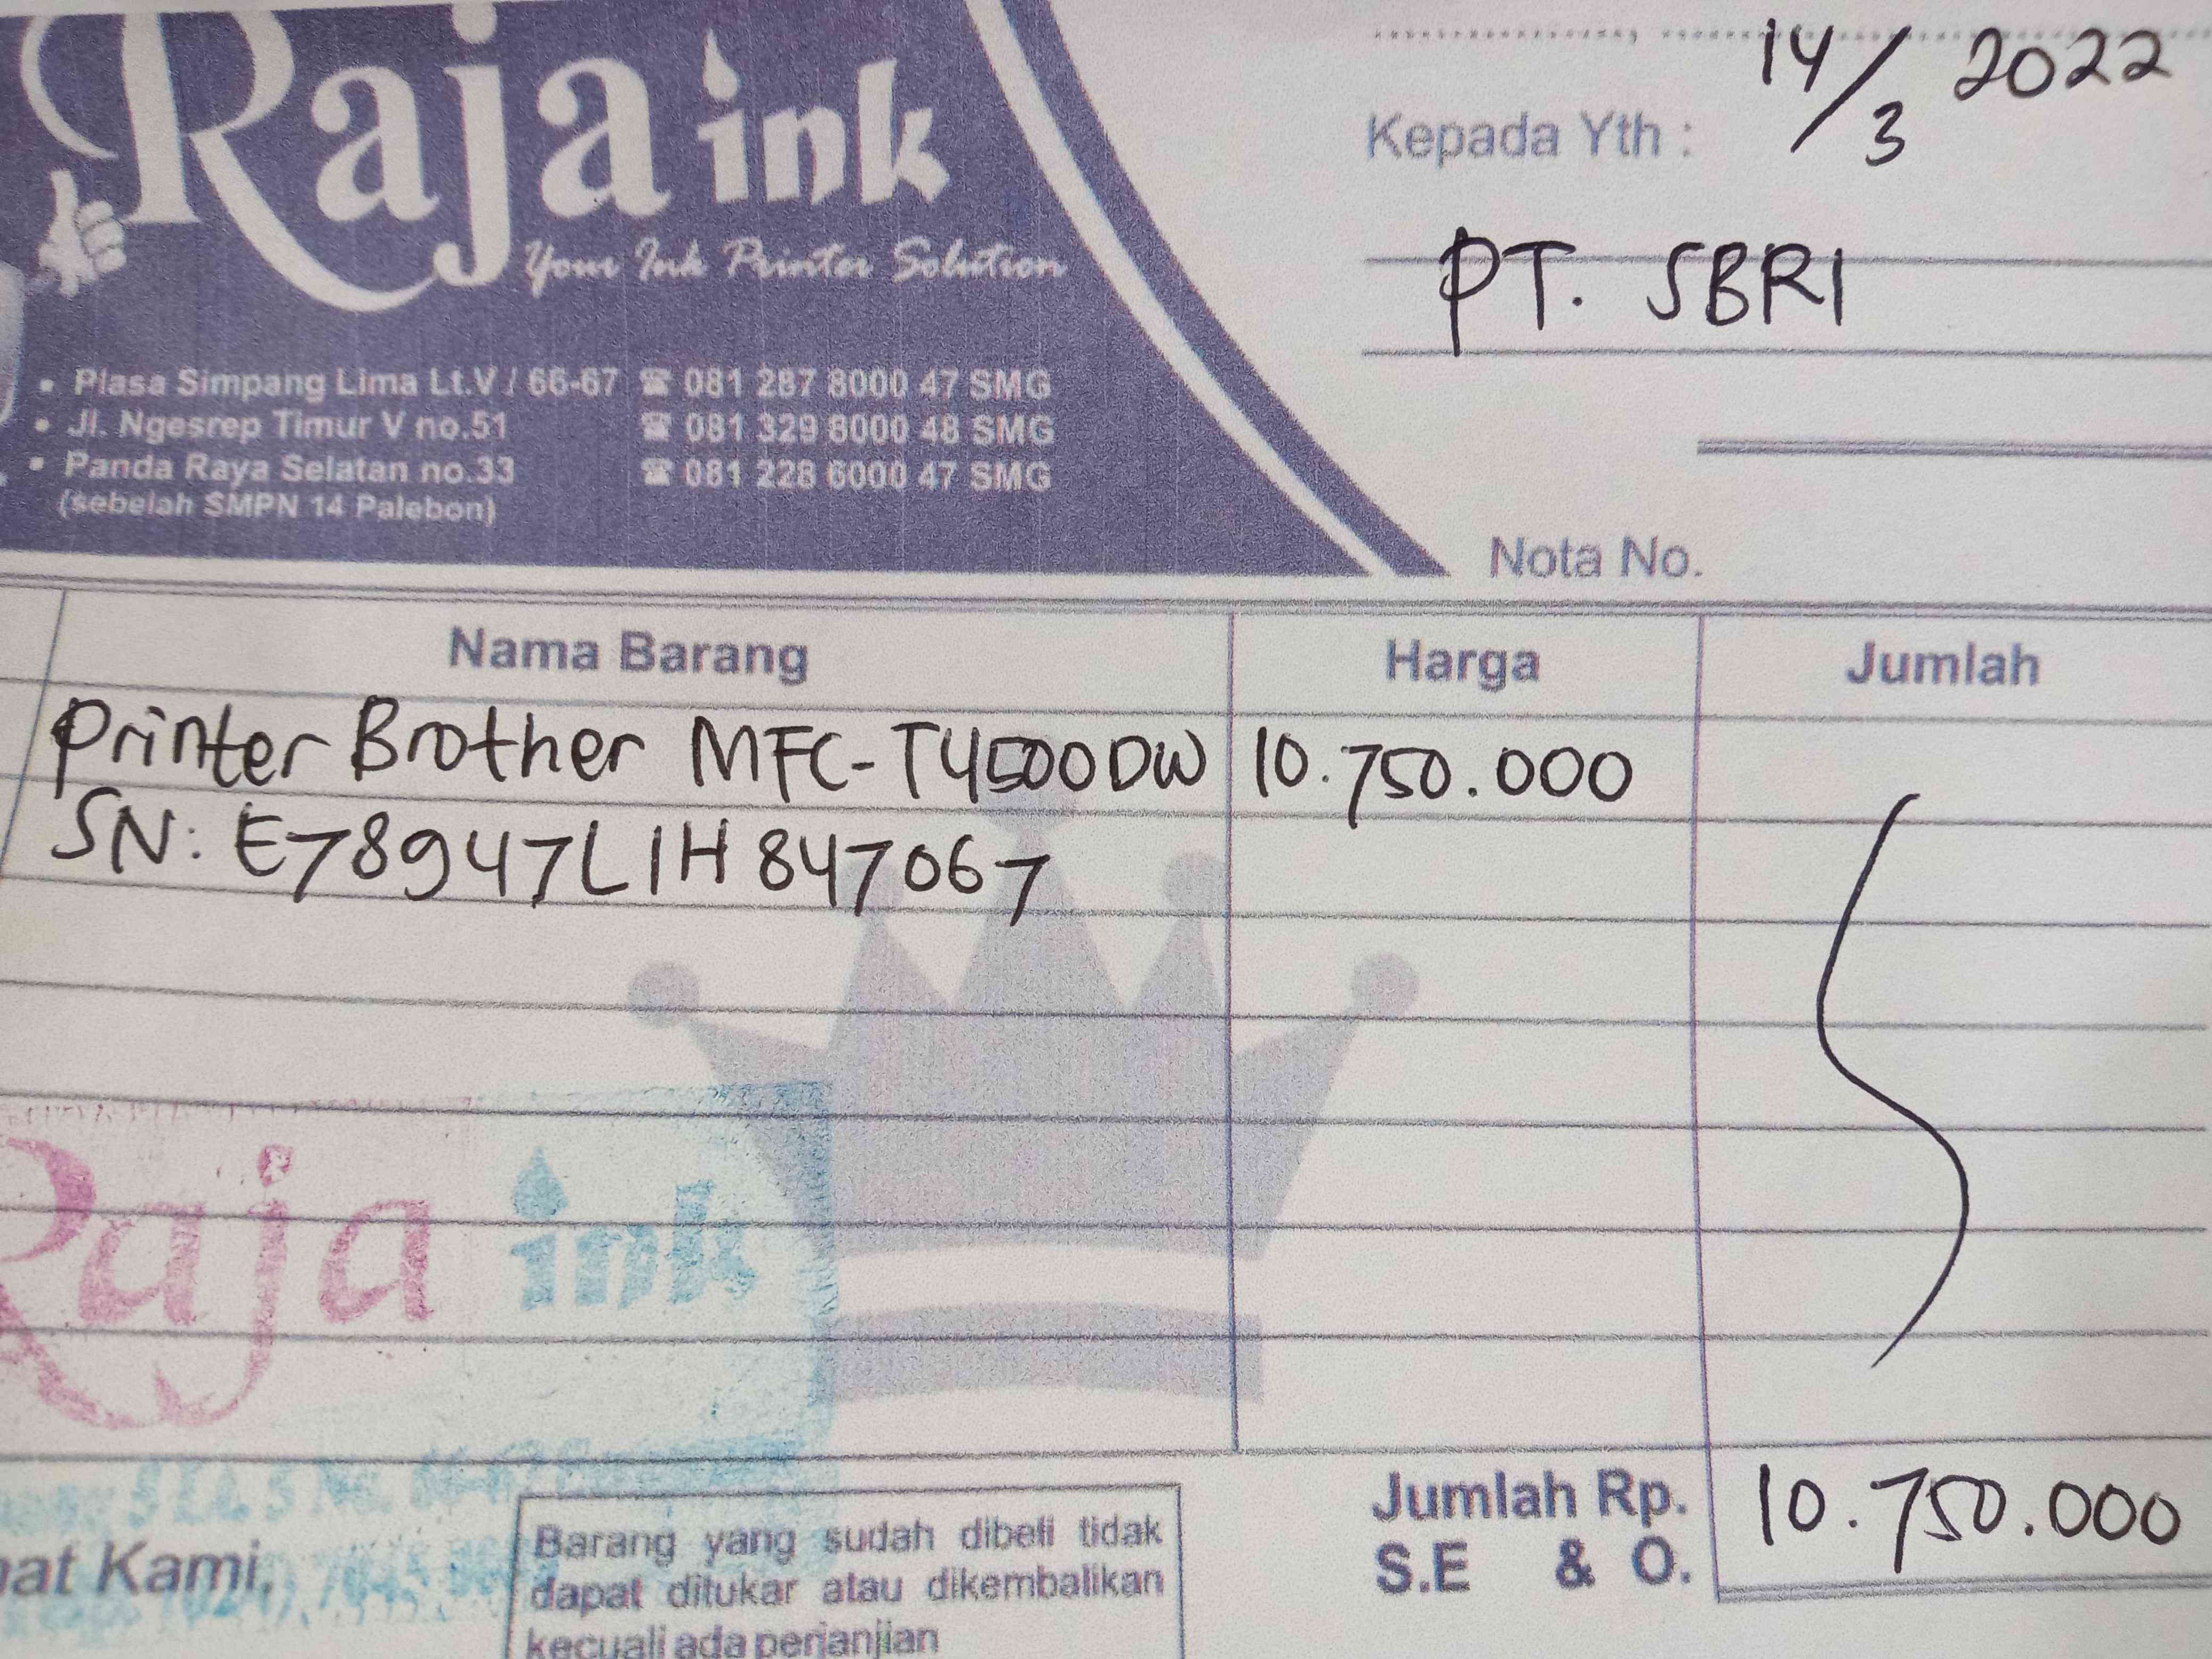 Raja ink
Your Ink Printer Solution
• Plasa Simpang Lima Lt.V / 66-67 ☎ 081 287 8000 47 SMG
• Jl. Ngesrep Timur V no.51 ☎ 081 329 8000 48 SMG
• Panda Raya Selatan no.33 ☎ 081 228 6000 47 SMG
(sebelah SMPN 14 Palebon)
14/3 2022
Kepada Yth :
PT. SBRI
Nota No.
Nama Barang Harga Jumlah
Printer Brother MFC-T4500DW 10.750.000
SN: E78947L1H847067
Raja ink
Jumlah Rp. 10.750.000
S.E & O.
Kami,
Barang yang sudah dibeli tidak
dapat ditukar atau dikembalikan
kecuali ada perjanjian